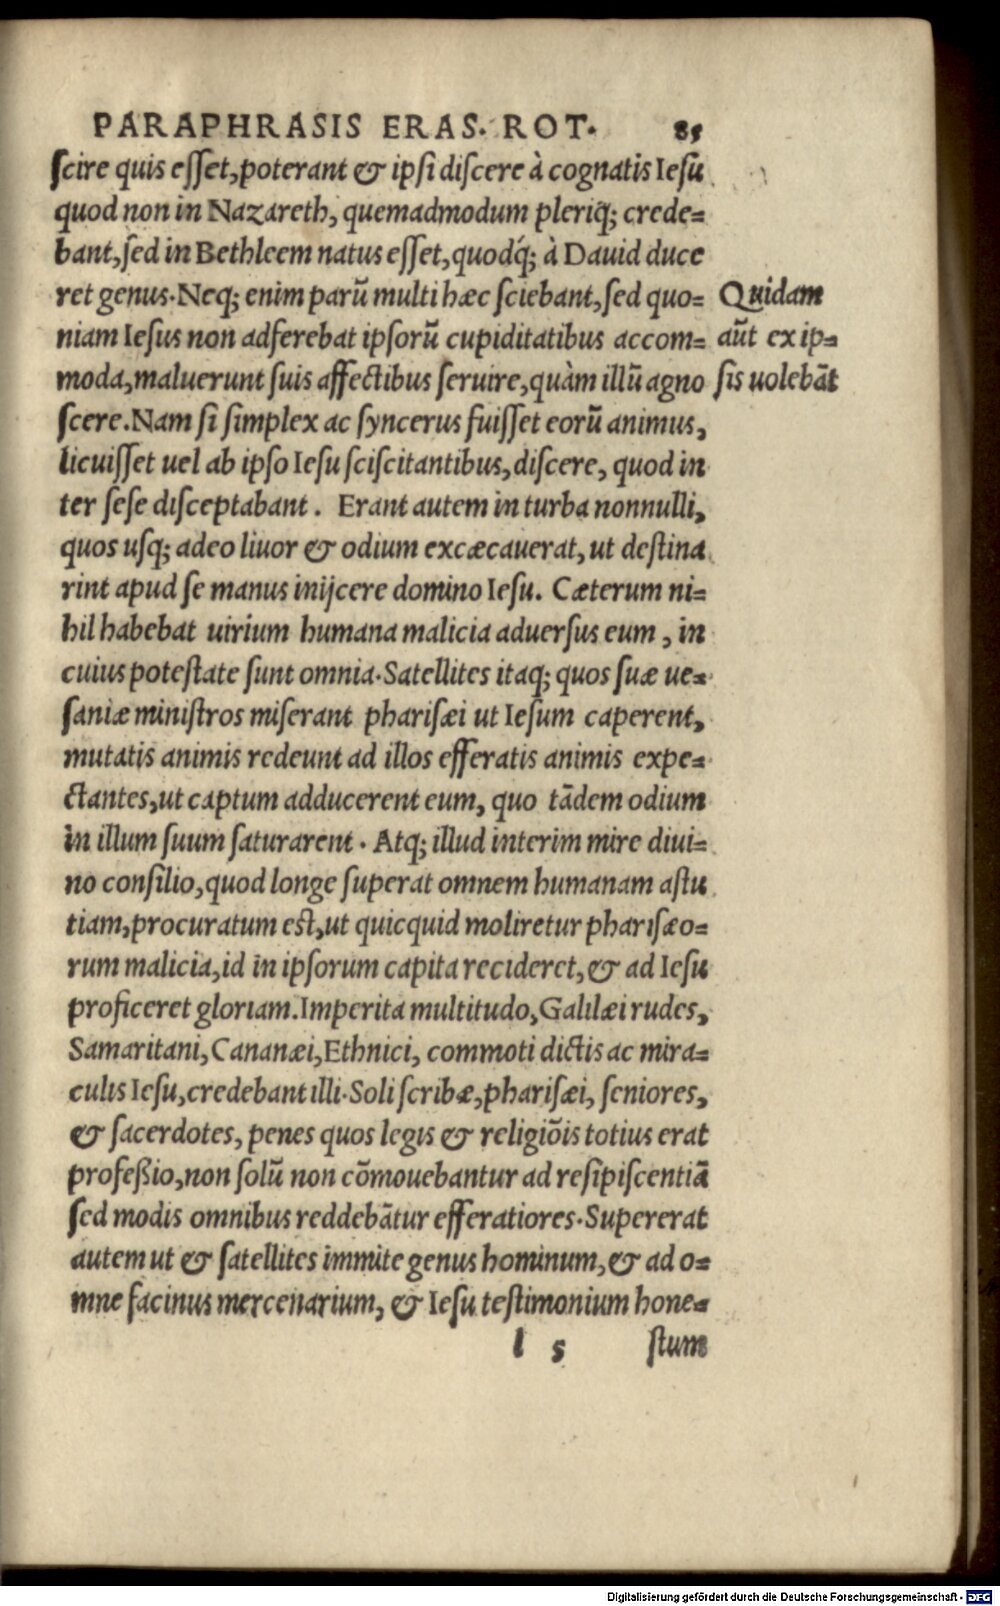 PARAPHRASIS ERAS. ROT. 85
ſcire quis eſſet, poterant & ipſi diſcere à cognatis Ieſu
quod non in Nazareth, quemadmodum pleriq; crede=
bant, ſed in Bethleem natus eſſet, quodq́; à Dauid duce
ret genus. Neq; enim parũ multi hæc ſciebant, ſed quo=
niam Ieſus non adferebat ipſorũ cupiditatibus accom=
moda, maluerunt ſuis affectibus ſeruire, quàm illũ agno
ſcere. Nam ſi ſimplex ac ſyncerus fuiſſet eorũ animus,
licuiſſet uel ab ipſo Ieſu ſciſcitantibus, diſcere, quod in
ter ſeſe diſceptabant. Erant autem in turba nonnulli,
quos uſq; adeo liuor & odium excæcauerat, ut deſtina
rint apud ſe manus inijcere domino Ieſu. Cæterum ni=
hil habebat uirium humana malicia aduerſus eum, in
cuius poteſtate ſunt omnia. Satellites itaq; quos ſuæ ue=
ſaniæ miniſtros miſerant phariſæi ut Ieſum caperent,
mutatis animis redeunt ad illos efferatis animis expe=
ctantes, ut captum adducerent eum, quo tãdem odium
in illum ſuum ſaturarent. Atq; illud interim mire diui=
no conſilio, quod longe ſuperat omnem humanam aſtu
tiam, procuratum eſt, ut quicquid moliretur phariſæo=
rum malicia, id in ipſorum capita recideret, & ad Ieſu
proficeret gloriam. Imperita multitudo, Galilæi rudes,
Samaritani, Cananæi, Ethnici, commoti dictis ac mira=
culis Ieſu, credebant illi. Soli ſcribæ, phariſæi, ſeniores,
& ſacerdotes, penes quos legis & religiõis totius erat
profeßio, non ſolũ non cõmouebantur ad reſipiſcentiã
ſed modis omnibus reddebãtur efferatiores. Supererat
autem ut & ſatellites immite genus hominum, & ad o=
mne facinus mercenarium, & Ieſu teſtimonium hone=
l 5 ſtum
Quidam
aũt ex ip=
ſis uolebãt
Digitalisierung gefördert durch die Deutsche Forschungsgemeinschaft - DFG